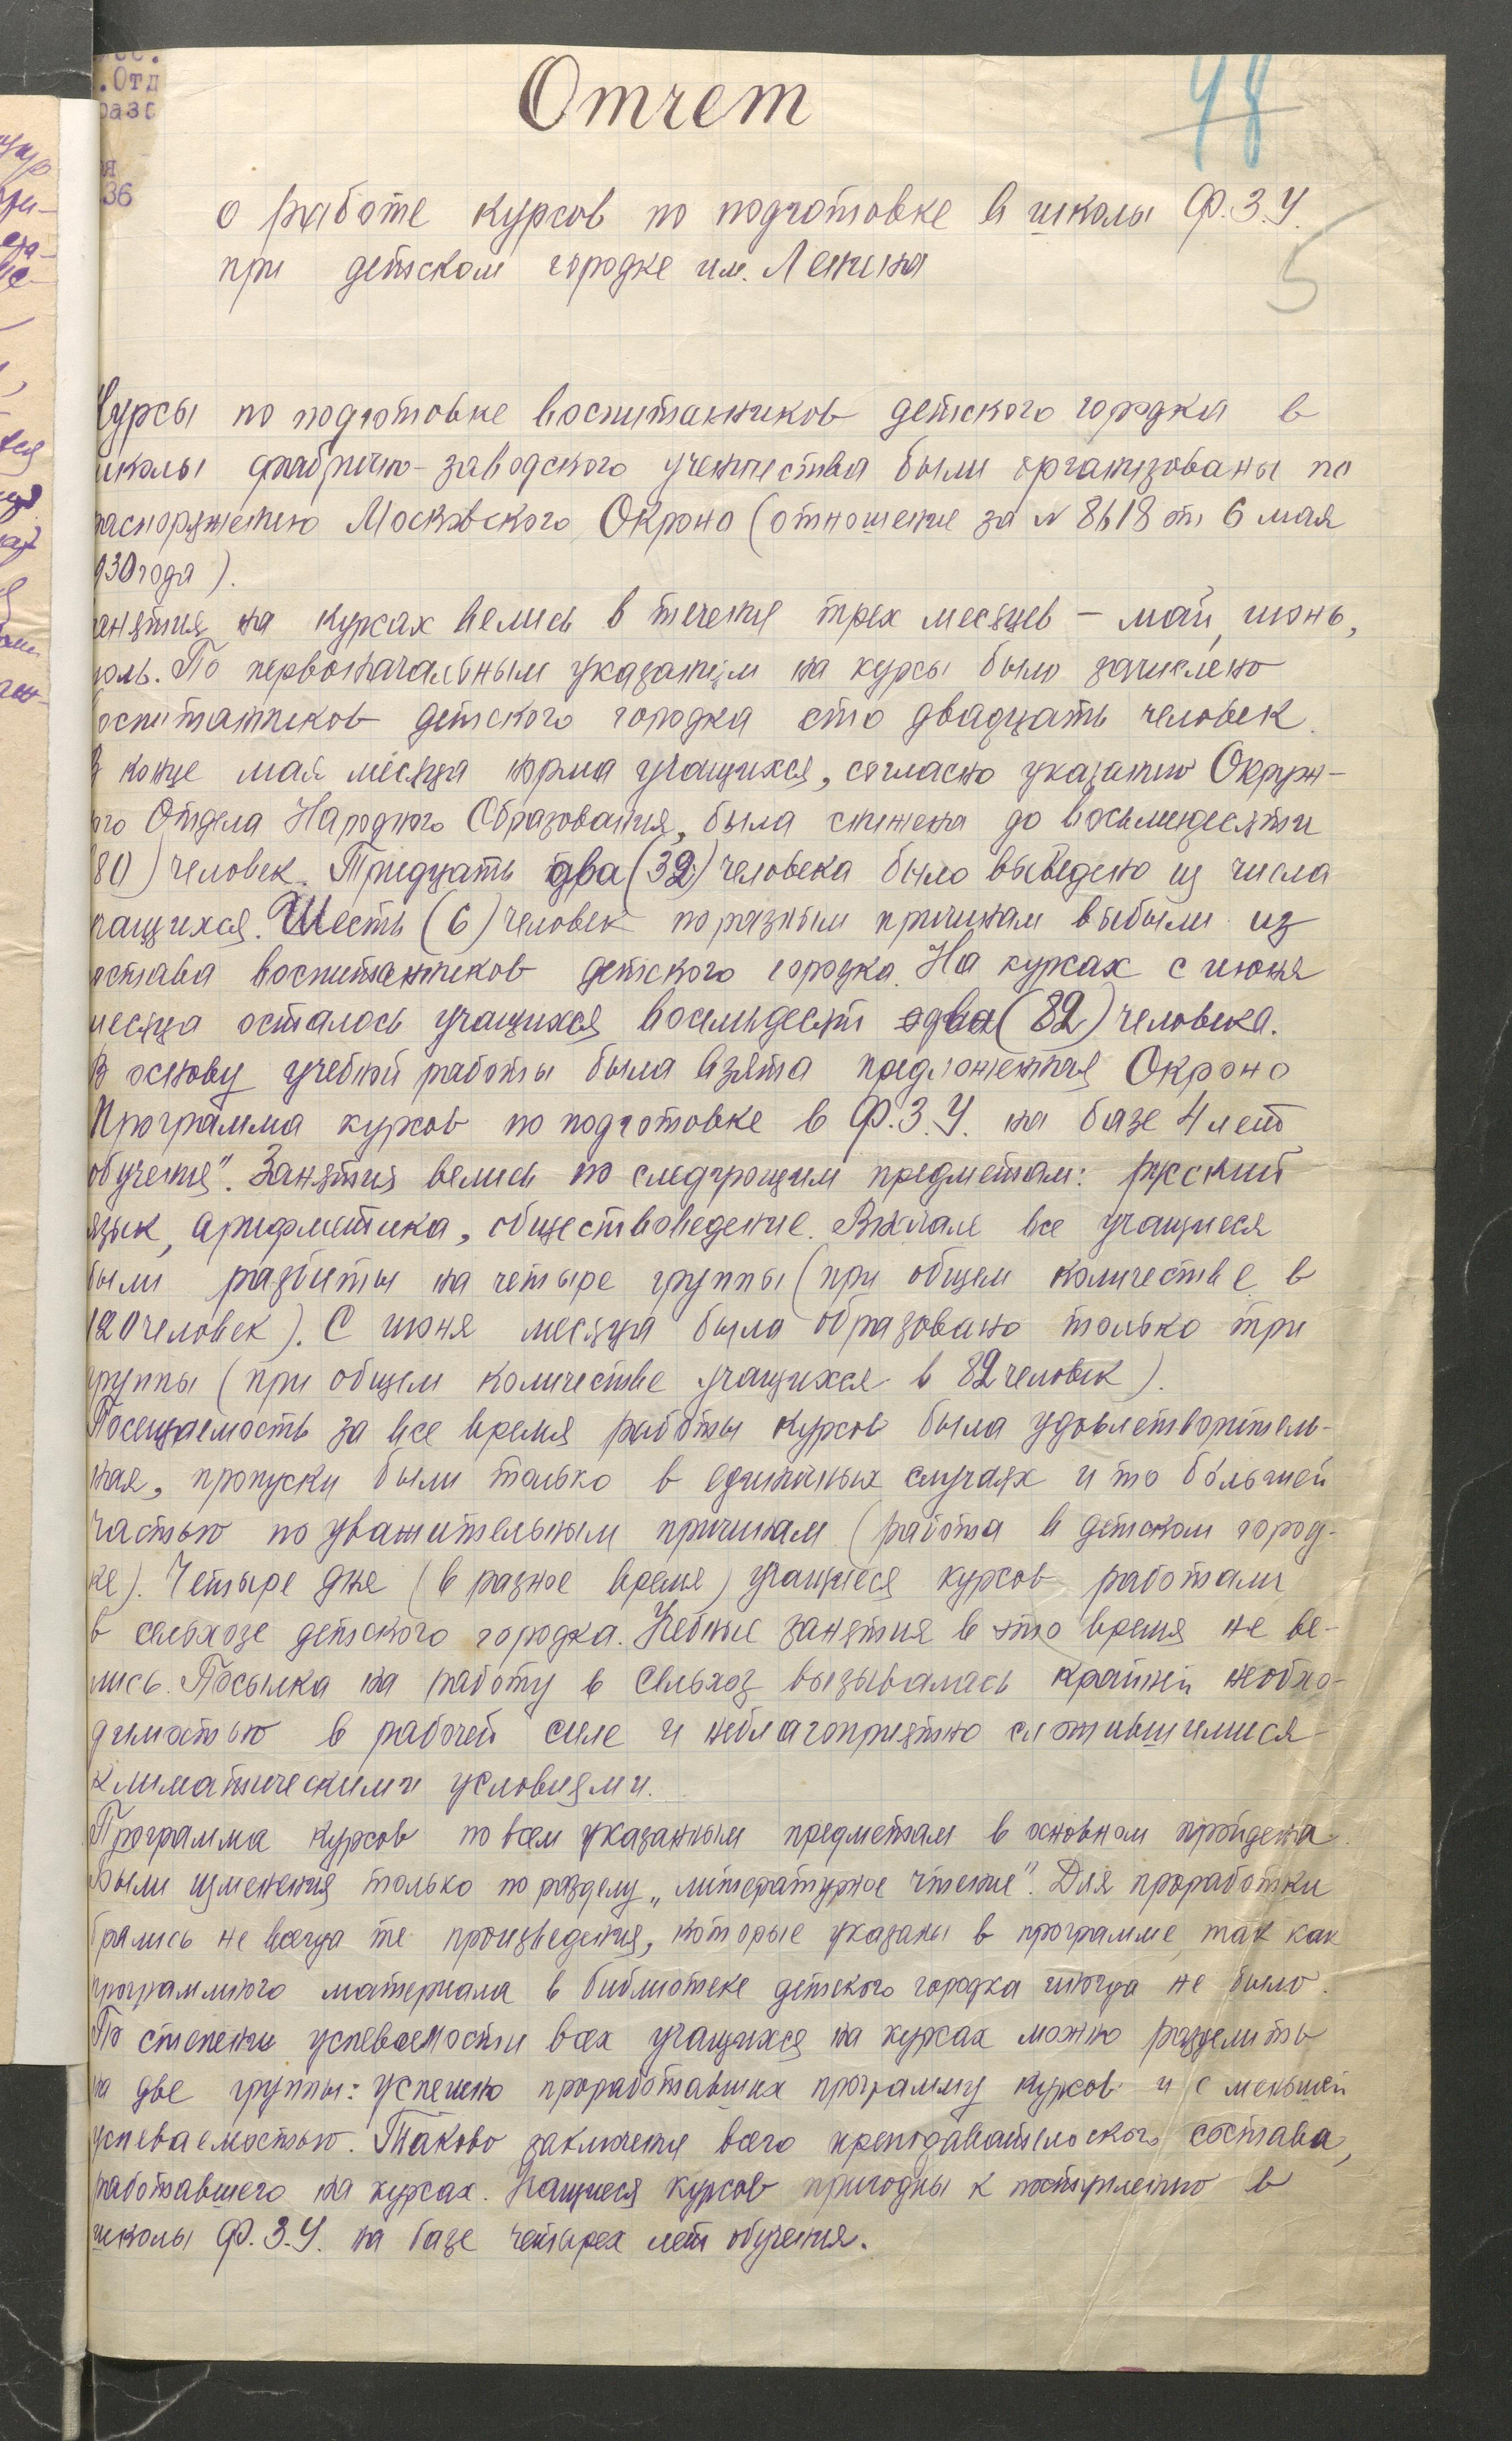 48
.Отд
разо
36
Отчет
о работе курсов по подготовке в школы Ф.З.У.
5
при детском городке им. Ленина
Курсы по подготовке воспитанников детского городка в
школы фабрично-заводского ученичества были организованы по
распоряжению Московского Окроно (отношение за № 8618 от 6 мая
930 года).
анятия на курсах велись в течение трех месяцев – май, июнь,
юль. По первоначальным указаниям на курсы было зачислено
воспитанников детского городка сто двадцать человек.
В конце мая месяца норма учащихся, согласно указанию Окруж-
ого Отдела Народного Образования, была снижена до восьмидесяти
(80) человек. Тридцать два (32) человека было выведено из числа
чащихся. Шесть (6) человек по разным причинам выбыли из
остава воспитанников детского городка. На курсах с июня
месяца осталось учащихся восемьдесят два (82) человека.
В основу учебной работы была взята предложенная Окроно
Программа курсов по подготовке в Ф.З.У. на базе 4 лет
обучения". Занятия велись по следующим предметам: русский
язык, арифметика, обществоведение. Вначале все учащиеся
были разбиты на четыре группы (при общем количестве в
120 человек). С июня месяца была образовано только три
группы (при общем количестве учащихся в 82 человек).
Посещаемость за все время работы курсов была удовлетворитель-
ная, пропуски были только в единичных случаях и то большей
частью по уважительным причинам (работа в детском город-
ке). Четыре дня (в разное время) учащиеся курсов работали
в сельхозе детского городка. Учебные занятия в это время не ве-
лись. Посылка на работу в сельхоз вызывалась крайней необхо-
димостью в рабочей силе и неблагоприятно сложившимися
климатическими условиями.
Программа курсов по всем указанным предметам в основном пройдена.
Были изменения только по разделу „литературное чтение". Для проработки
брались не всегда те произведения, которые указаны в программе, так как
программного материала в библиотеке детского городка иногда не было.
По степени успеваемости всех учащихся на курсах можно разделить
на две группы: успешно проработавших программу курсов и с меньшей
успеваемостью. Таково заключение всего преподавательского состава,
работавшего на курсах. Учащиеся курсов пригодны к поступлению в
школы Ф.З.У. на базе четырех лет обучения.